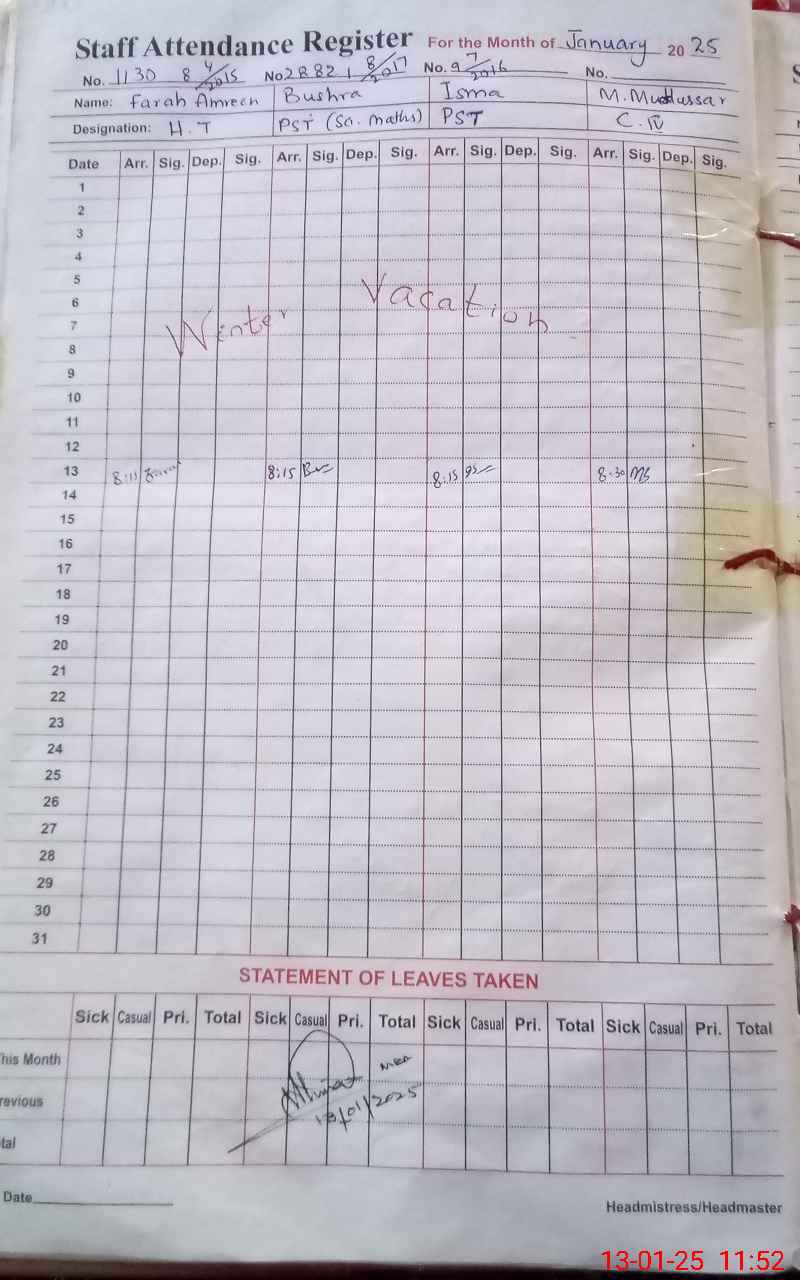 Staff Attendance Register For the Month of January 2025
No. 1130 8/4/2015 No 2882 1/8/2017 No. 9/7/2016 No.
Name: Farah Amreen Bushra Isma M. Muddassar
Designation: H.T PST (Sc. maths) PST C.IV
Date Arr. Sig. Dep. Sig. Arr. Sig. Dep. Sig. Arr. Sig. Dep. Sig. Arr. Sig. Dep. Sig.
1
2
3
4
5
6
Winter Vacation
7
8
9
10
11
12
13 8:15 8:15 8:15 8:30
14
15
16
17
18
19
20
21
22
23
24
25
26
27
28
29
30
31
STATEMENT OF LEAVES TAKEN
Sick Casual Pri. Total Sick Casual Pri. Total Sick Casual Pri. Total Sick Casual Pri. Total
his Month
MEA
revious
13/01/2025
tal
Date
Headmistress/Headmaster
13-01-25 11:52